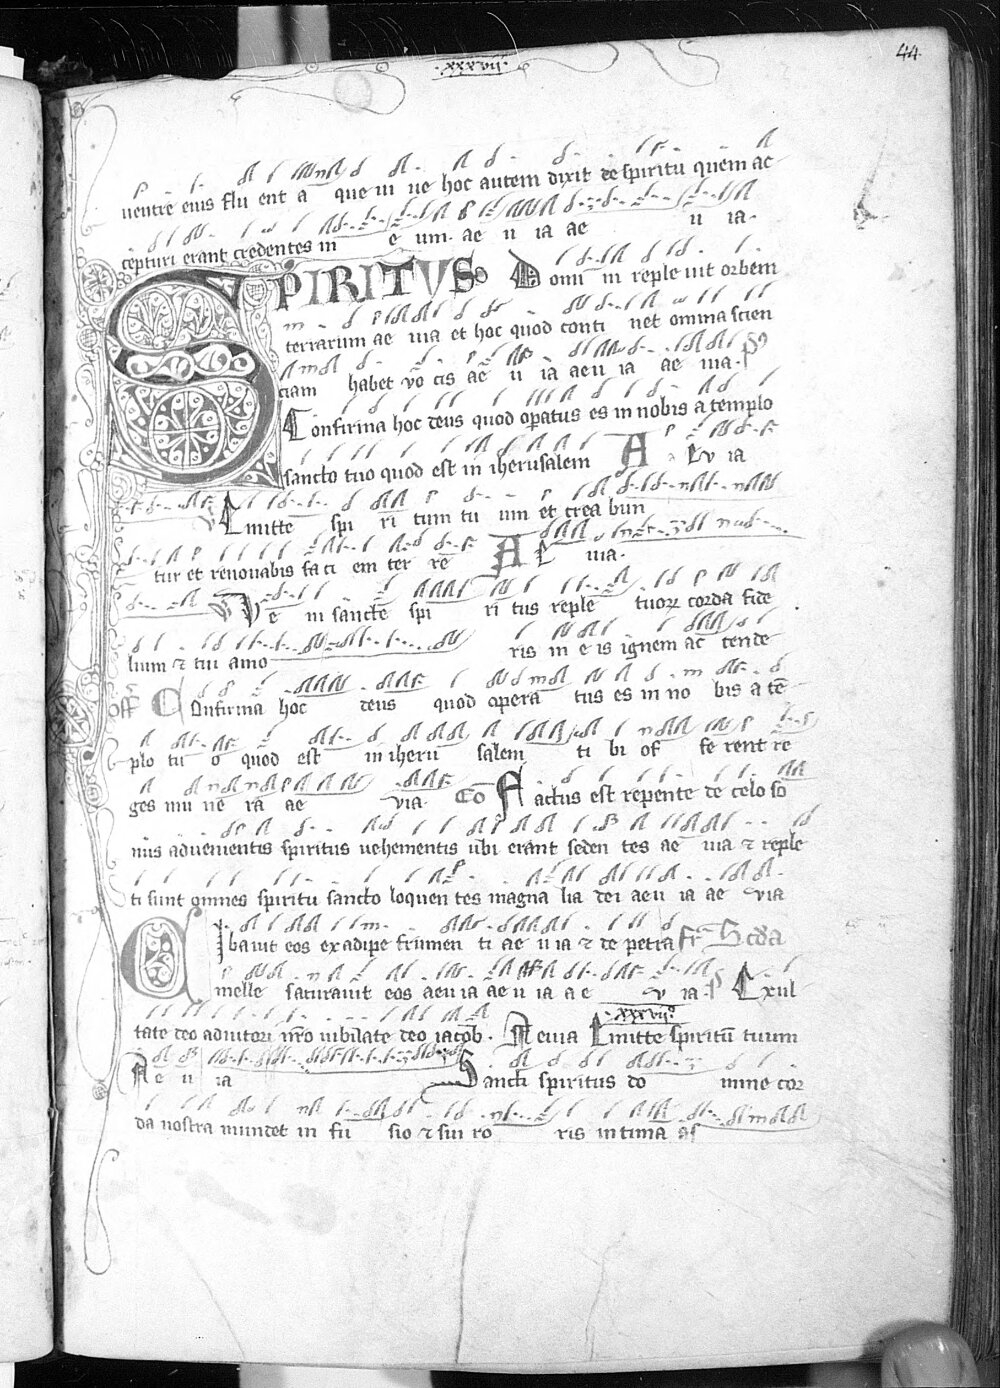 44
·xxxxvii·
uentre eius flu ent a que ui ue hoc autem dixit de spiritu quem ac
cepturi erant credentes in e um· ae u ia ae u ia·
SPIRITVS Domi ni reple uit orbem
terrarum ae uia et hoc quod conti net omnia scien
ciam habet vo cis ae u ia aeu ia ae uia· ps
Confirma hoc deus quod opatus es in nobis a templo
sancto tuo quod est in iherusalem A Lv ia
Emitte spi ri tum tu um et crea bun
tur et renouabis faci em ter re A L uia·
V Ve ni sancte spi ri tus reple tuoꝝ corda fide
lium ⁊ tui amo ris in e is ignem ac cende
Off Confirma hoc deus quod opera tus es in no bis a tē
plo tu o quod est in iheru salem ti bi of fe rent re
ges mu ne ra ae via· Cō Factus est repente de celo so
nus aduenientis spiritus uehementis ubi erant seden tes ae uia ⁊ reple
ti sunt omnes spiritu sancto loquen tes magna lia dei aeu ia ae via
Cibauit eos ex adipe frumen ti ae u ia ⁊ de petra fr̄ Scda
melle saturauit eos aeu ia ae u ia a e v ia· p Exul
tate deo adiutori nr̄o iubilate deo iacob· Aeuia Emitte spiritū tuum
·xxxvii·
Ae u ia Sancti spiritus do mine cor
da nostra mundet in fu sio ⁊ sui ro ris intima as